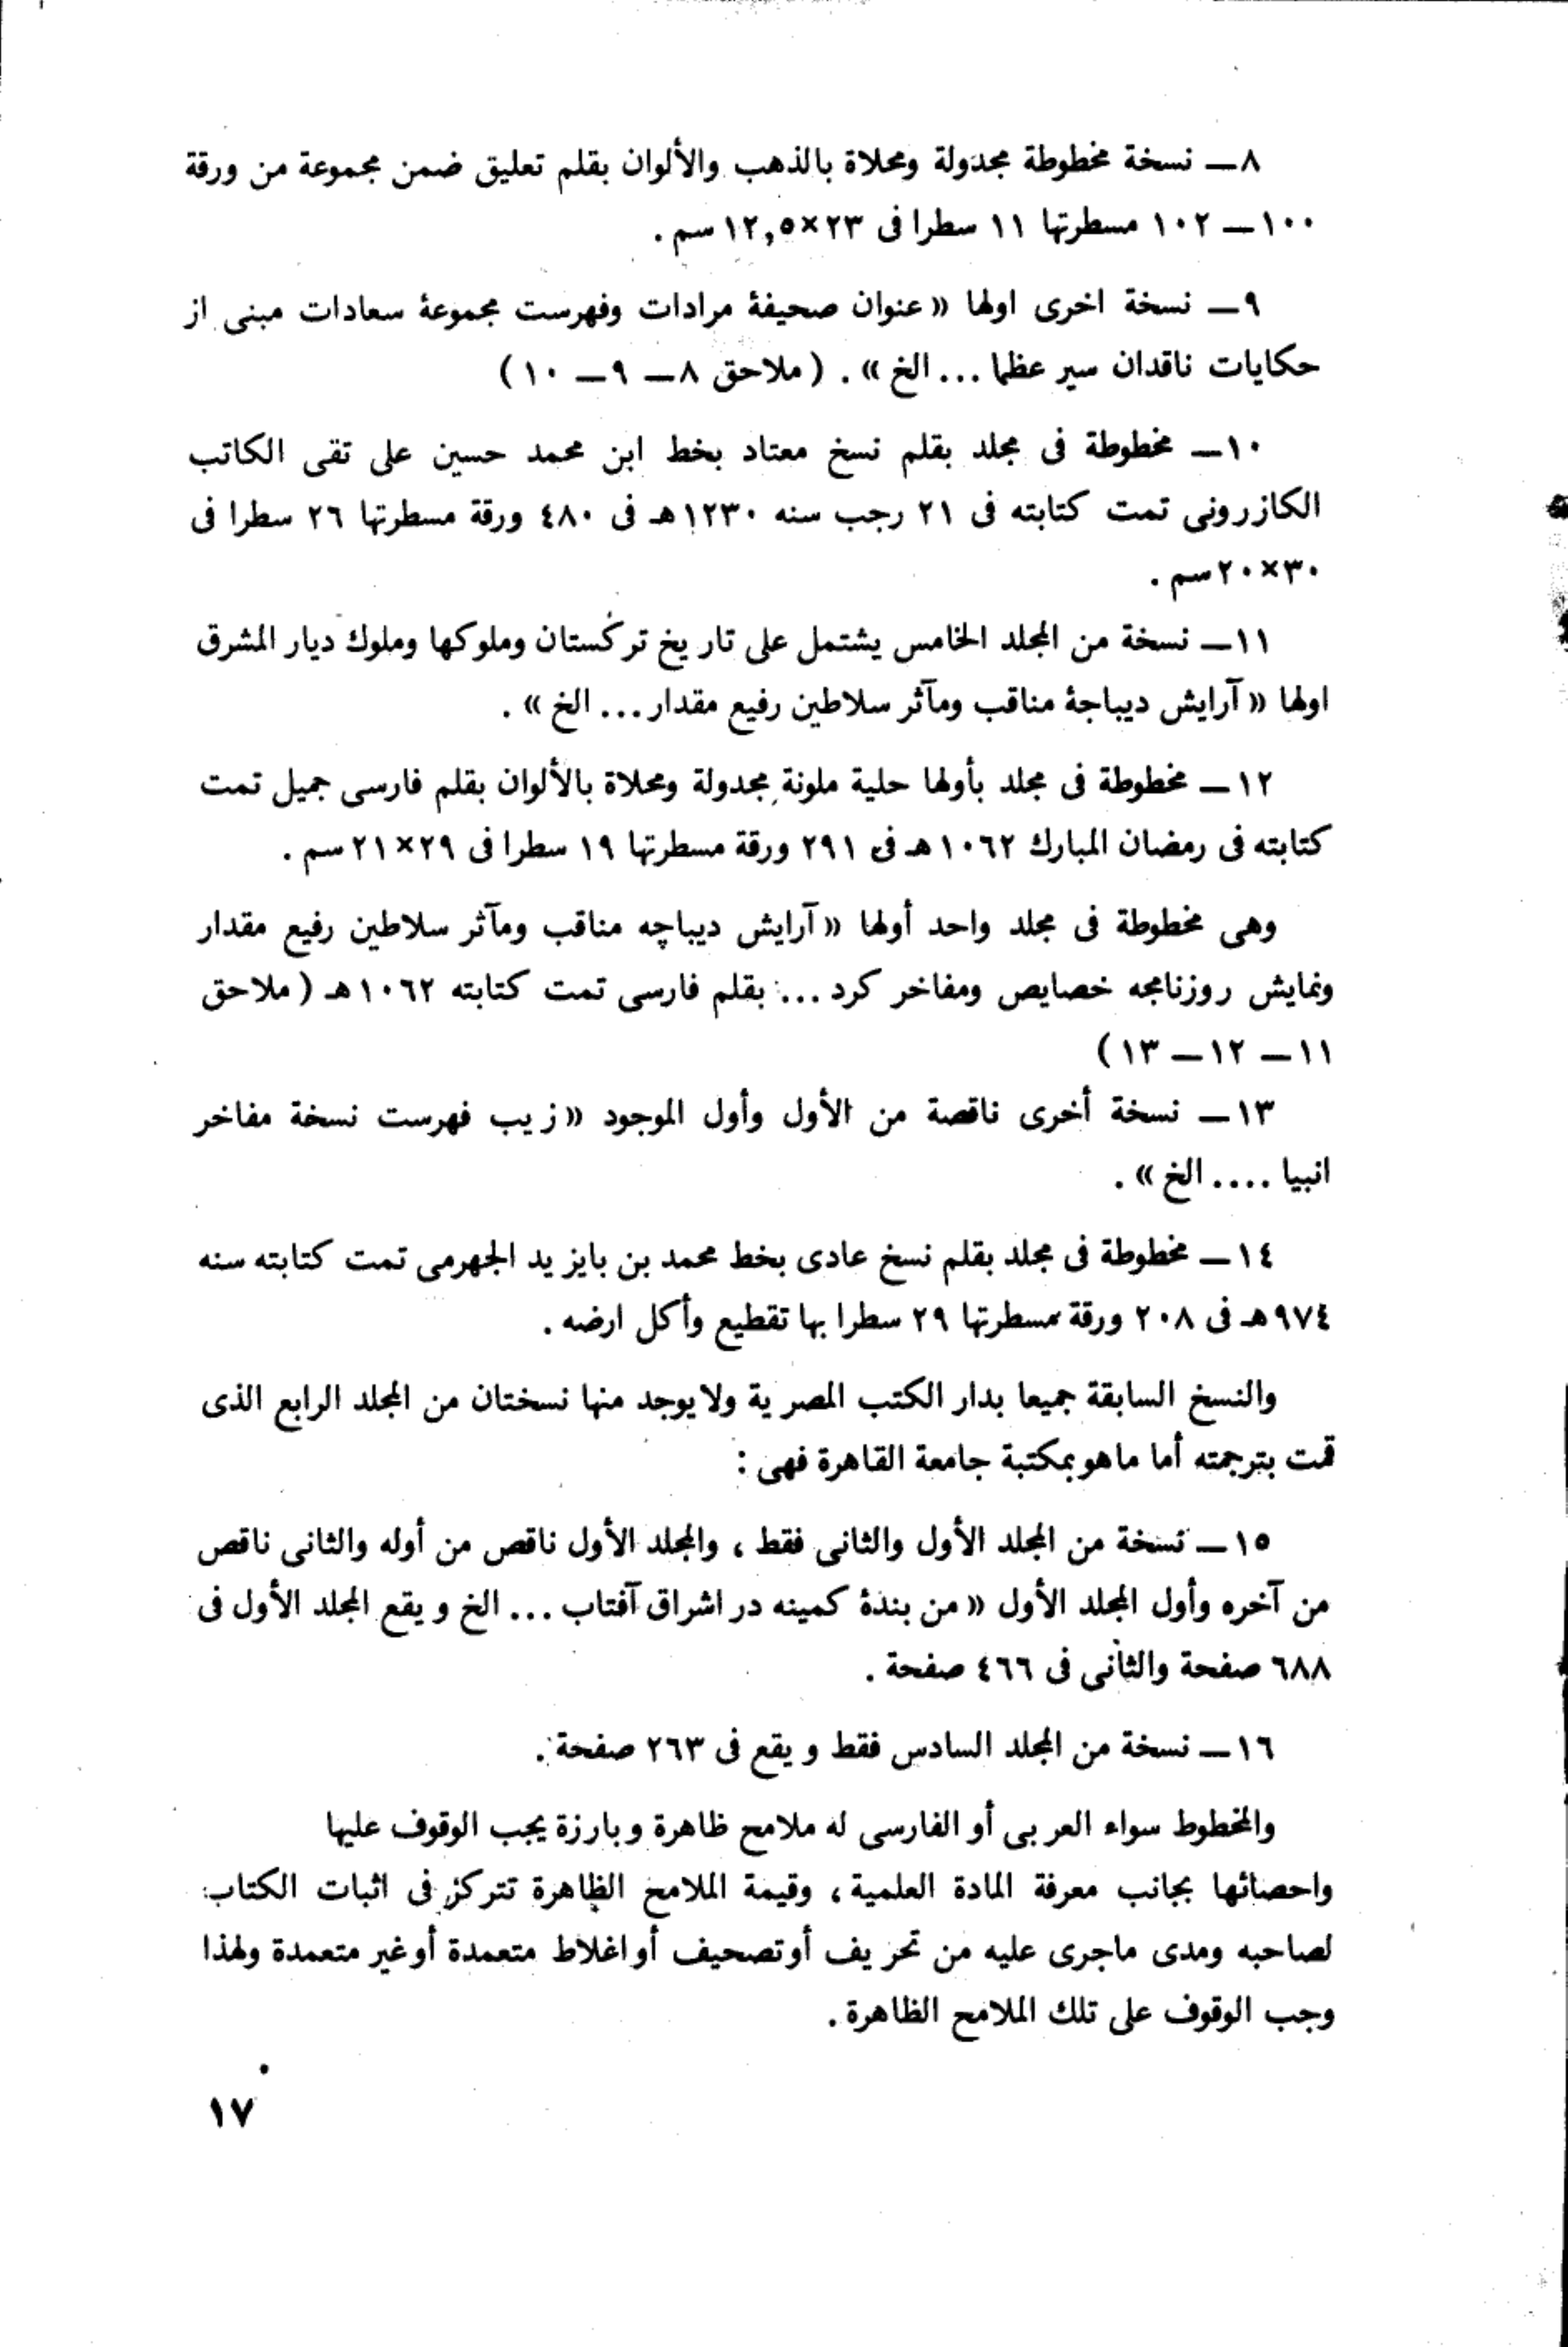 ٨ــ نسخة مخطوطة مجدولة ومحلاة بالذهب والألوان بقلم تعليق ضمن مجموعة من ورقة
١٠٠ ــ ١٠٢ مسطرتها ١١ سطرا فى ٢٣×١٢,٥ سم .
٩ــ نسخة اخرى اولها « عنوان صحيفۀ مرادات وفهرست مجموعۀ سعادات مبنى از
حكايات ناقدان سير عظما ... الخ » . ( ملاحق ٨ــ ٩ــ ١٠ )
١٠ــ مخطوطة فى مجلد بقلم نسخ معتاد بخط ابن محمد حسين على تقى الكاتب
الكازرونى تمت كتابته فى ٢١ رجب سنه ١٢٣٠هـ فى ٤٨٠ ورقة مسطرتها ٢٦ سطرا فى
٣٠×٢٠سم .
١١ــ نسخة من المجلد الخامس يشتمل على تاريخ تركستان وملوكها وملوك ديار المشرق
اولها « آرايش ديباجۀ مناقب ومآثر سلاطين رفيع مقدار ... الخ » .
١٢ــ مخطوطة فى مجلد بأولها حلية ملونة مجدولة ومحلاة بالألوان بقلم فارسى جميل تمت
كتابته فى رمضان المبارك ١٠٦٢هـ فى ٢٩١ ورقة مسطرتها ١٩ سطرا فى ٢٩×٢١ سم .
وهى مخطوطة فى مجلد واحد أولها « آرايش ديباچه مناقب ومآثر سلاطين رفيع مقدار
ونمايش روزنامجه خصايص ومفاخر كرد ... بقلم فارسى تمت كتابته ١٠٦٢هـ ( ملاحق
١١ــ ١٢ــ ١٣ )
١٣ــ نسخة أخرى ناقصة من الأول وأول الموجود « زيب فهرست نسخة مفاخر
انبيا .... الخ » .
١٤ــ مخطوطة فى مجلد بقلم نسخ عادى بخط محمد بن بايزيد الجهرمى تمت كتابته سنه
٩٧٤هـ فى ٢٠٨ ورقة مسطرتها ٢٩ سطرا بها تقطيع وأكل ارضه .
والنسخ السابقة جميعا بدار الكتب المصرية ولايوجد منها نسختان من المجلد الرابع الذى
قمت بترجمته أما ماهو بمكتبة جامعة القاهرة فهى :
١٥ــ نسخة من المجلد الأول والثانى فقط ، والمجلد الأول ناقص من أوله والثانى ناقص
من آخره وأول المجلد الأول « من بندۀ كمينه در اشراق آفتاب ... الخ ويقع المجلد الأول فى
٦٨٨ صفحة والثانى فى ٤٦٦ صفحة .
١٦ــ نسخة من المجلد السادس فقط ويقع فى ٢٦٣ صفحة .
والمخطوط سواء العربى أو الفارسى له ملامح ظاهرة وبارزة يجب الوقوف عليها
واحصائها بجانب معرفة المادة العلمية ، وقيمة الملامح الظاهرة تتركز فى اثبات الكتاب
لصاحبه ومدى ماجرى عليه من تحريف أوتصحيف أواغلاط متعمدة أوغير متعمدة ولهذا
وجب الوقوف على تلك الملامح الظاهرة .
١٧